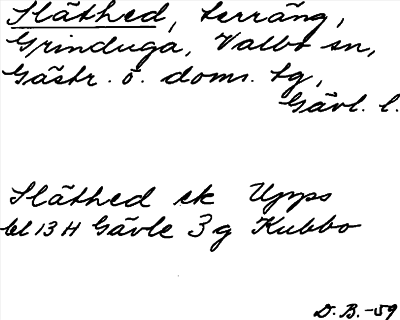 Släthed, terräng,
Grinduga, Valbo sn,
Gästr. ö. doms. tg,
Gävl. l.
Släthed ek Upps
bl 13 H Gävle 3 g Kubbo
D. B. -59